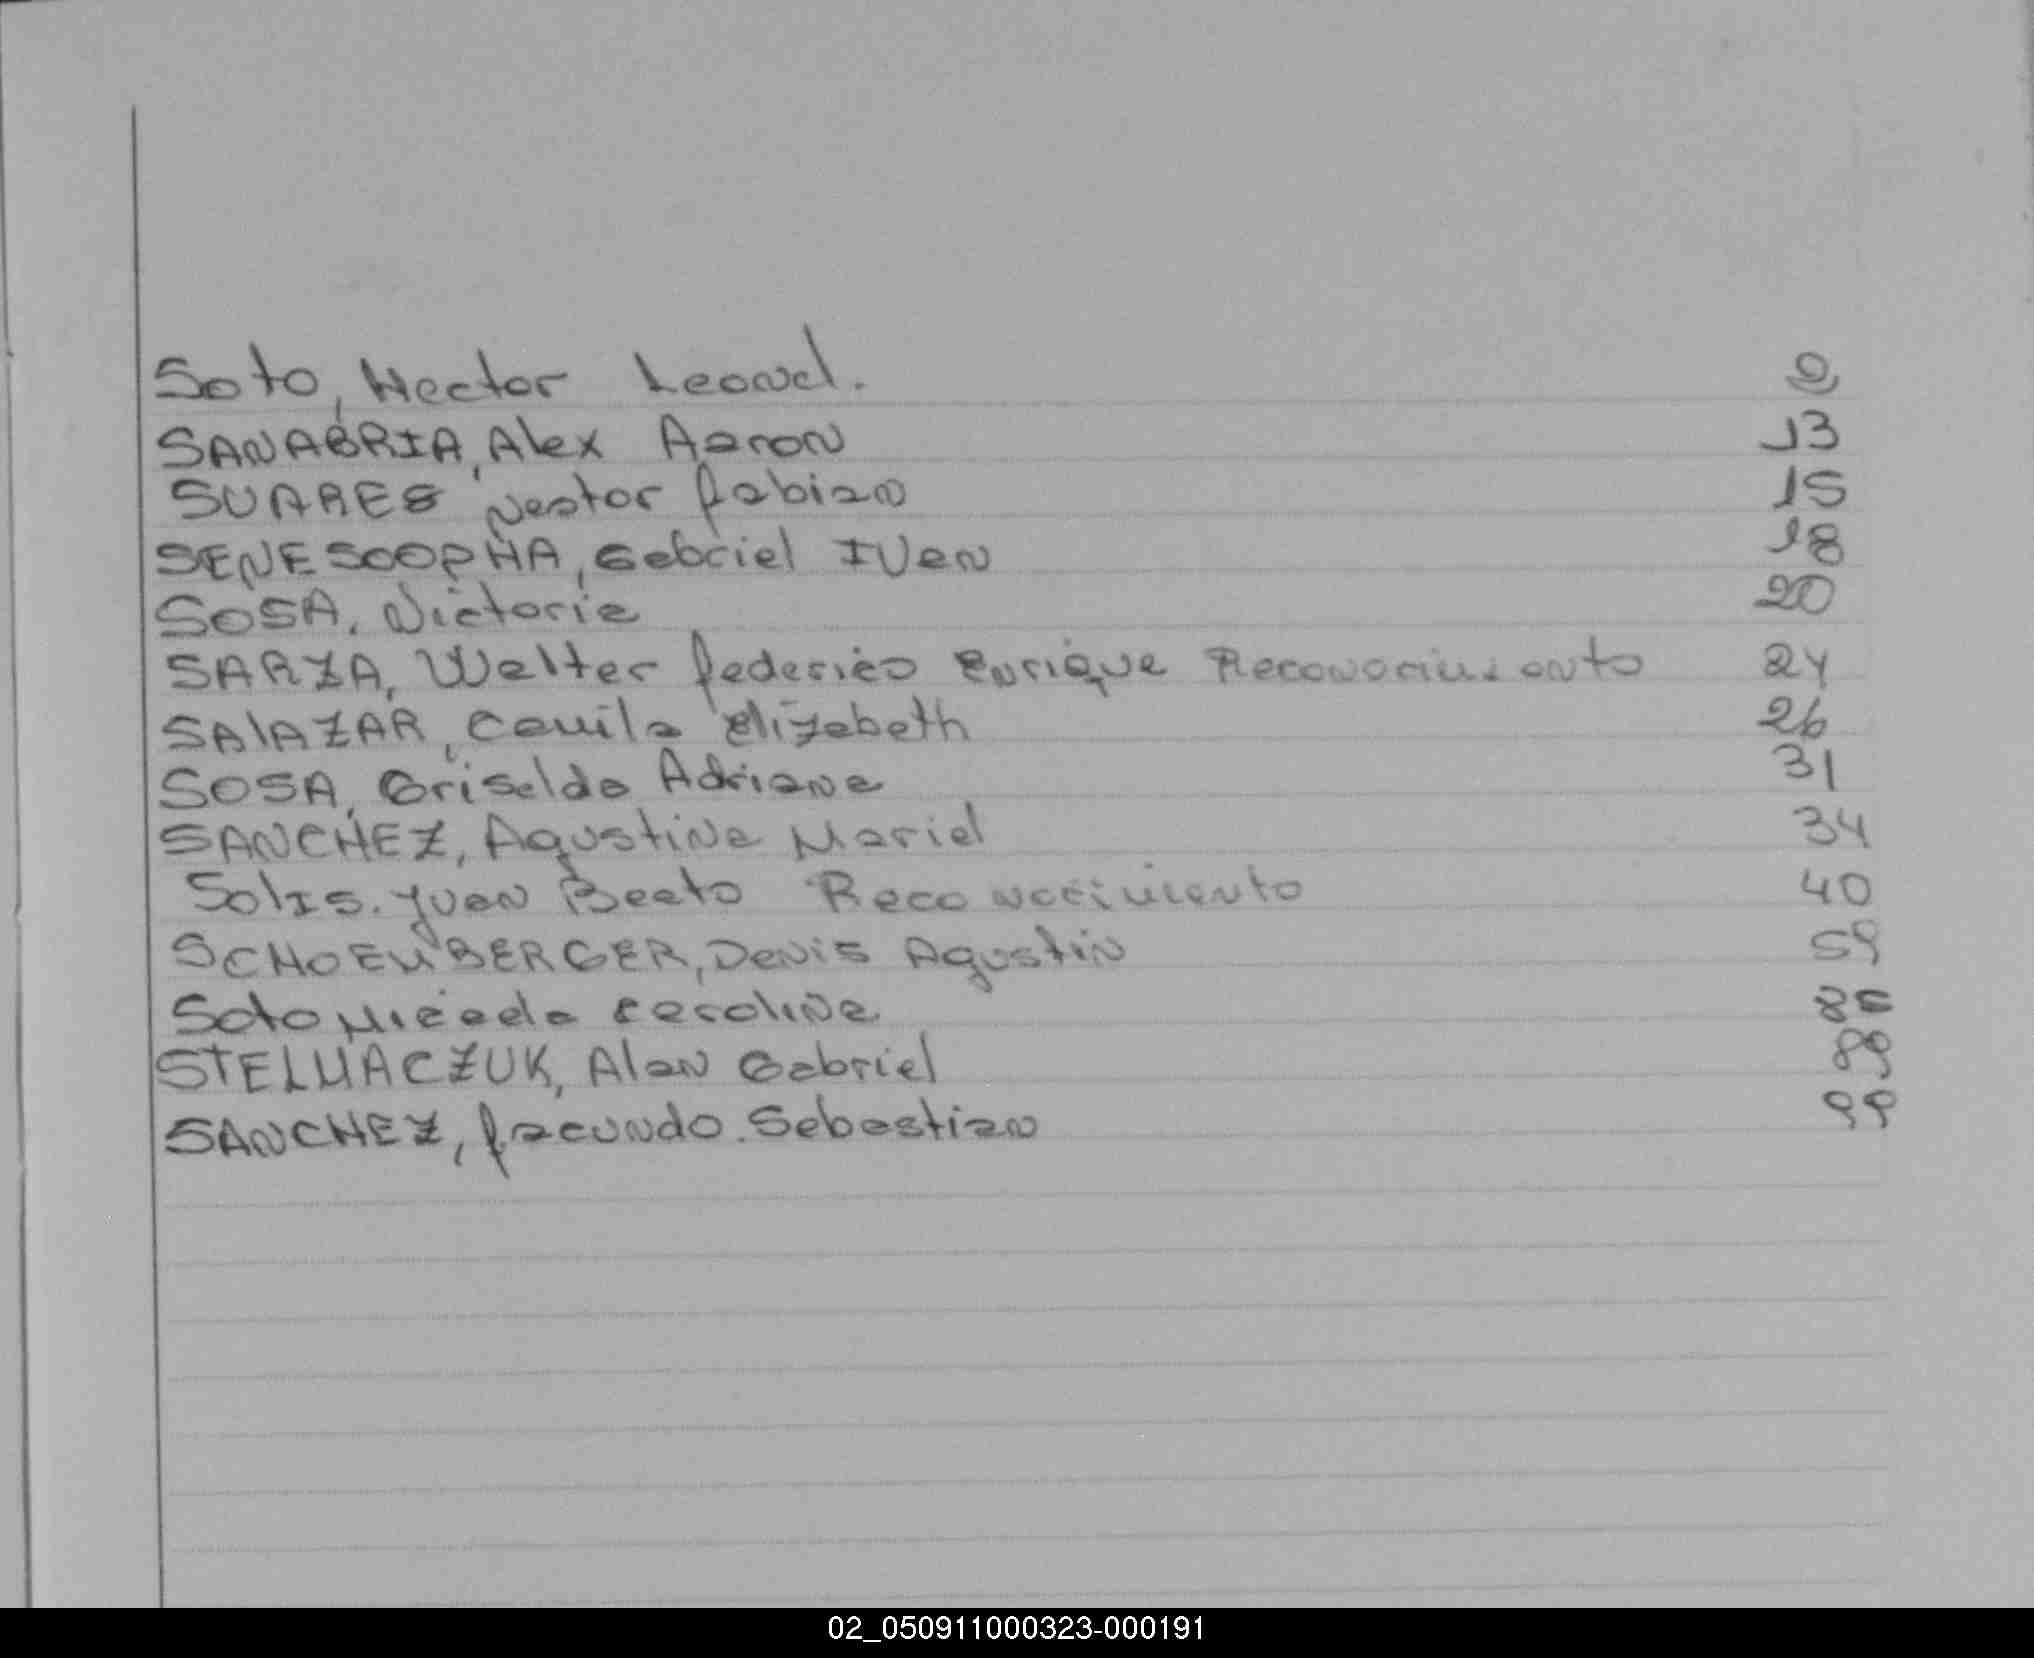 Soto, Hector Leonel. 2
SANABRIA, Alex Aaron 13
SUARES Nestor fabian 15
SENESOOPHA, Gabriel IVan 18
SOSA, Victoria 20
SARZA, Walter federico Enrique Reconocimiento 24
SAlAZAR, Camila Elizabeth 26
SOSA, Griselda Adriana 31
SANCHEZ, Agustina Mariel 34
SolIs. Juan Beato Reconocimiento 40
SCHOEMBERGER, Denis Agustin 59
Soto Micaela Carolina
STELMACZUK, Alan Gabriel 89
SANCHEZ, facundo. Sebastian 99
02_050911000323-000191